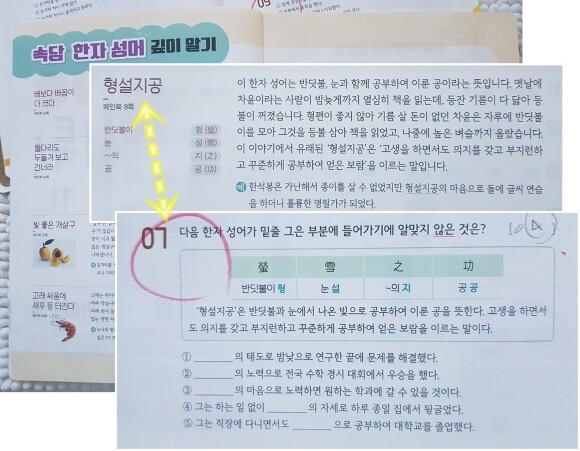 속담 한자 성어 깊이 알기
배보다 배꼽이
더 크다
돌다리도
두들겨 보고
건너라
빛 좋은 개살구
고래 싸움에
새우 등 터진다
형설지공
메인북 8쪽
반딧불이 형 (螢)
눈 설 (雪)
~의 지 (之)
공 공 (功)
이 한자 성어는 반딧불, 눈과 함께 공부하여 이룬 공이라는 뜻입니다. 옛날에
차윤이라는 사람이 밤늦게까지 열심히 책을 읽는데, 등잔 기름이 다 닳아 등
불이 꺼졌습니다. 형편이 좋지 않아 기름 살 돈이 없던 차윤은 자루에 반딧불
이를 모아 그것을 등불 삼아 책을 읽었고, 나중에 높은 벼슬까지 올랐습니다.
이 이야기에서 유래된 '형설지공'은 '고생을 하면서도 의지를 갖고 부지런하
고 꾸준하게 공부하여 얻은 보람'을 이르는 말입니다.
예 한석봉은 가난해서 종이를 살 수 없었지만 형설지공의 마음으로 돌에 글씨 연습
을 하더니 훌륭한 명필가가 되었다.
07 다음 한자 성어가 밑줄 그은 부분에 들어가기에 알맞지 않은 것은? [ 4 ]
螢 雪 之 功
반딧불이 형 눈 설 ~의 지 공 공
'형설지공'은 반딧불과 눈에서 나온 빛으로 공부하여 이룬 공을 뜻한다. 고생을 하면서
도 의지를 갖고 부지런하고 꾸준하게 공부하여 얻은 보람을 이르는 말이다.
① ________의 태도로 밤낮으로 연구한 끝에 문제를 해결했다.
② ________의 노력으로 전국 수학 경시 대회에서 우승을 했다.
③ ________의 마음으로 노력하면 원하는 학과에 갈 수 있을 것이다.
④ 그는 하는 일 없이 ________의 자세로 하루 종일 집에서 뒹굴었다.
⑤ 그는 직장에 다니면서도 ________으로 공부하여 대학교를 졸업했다.